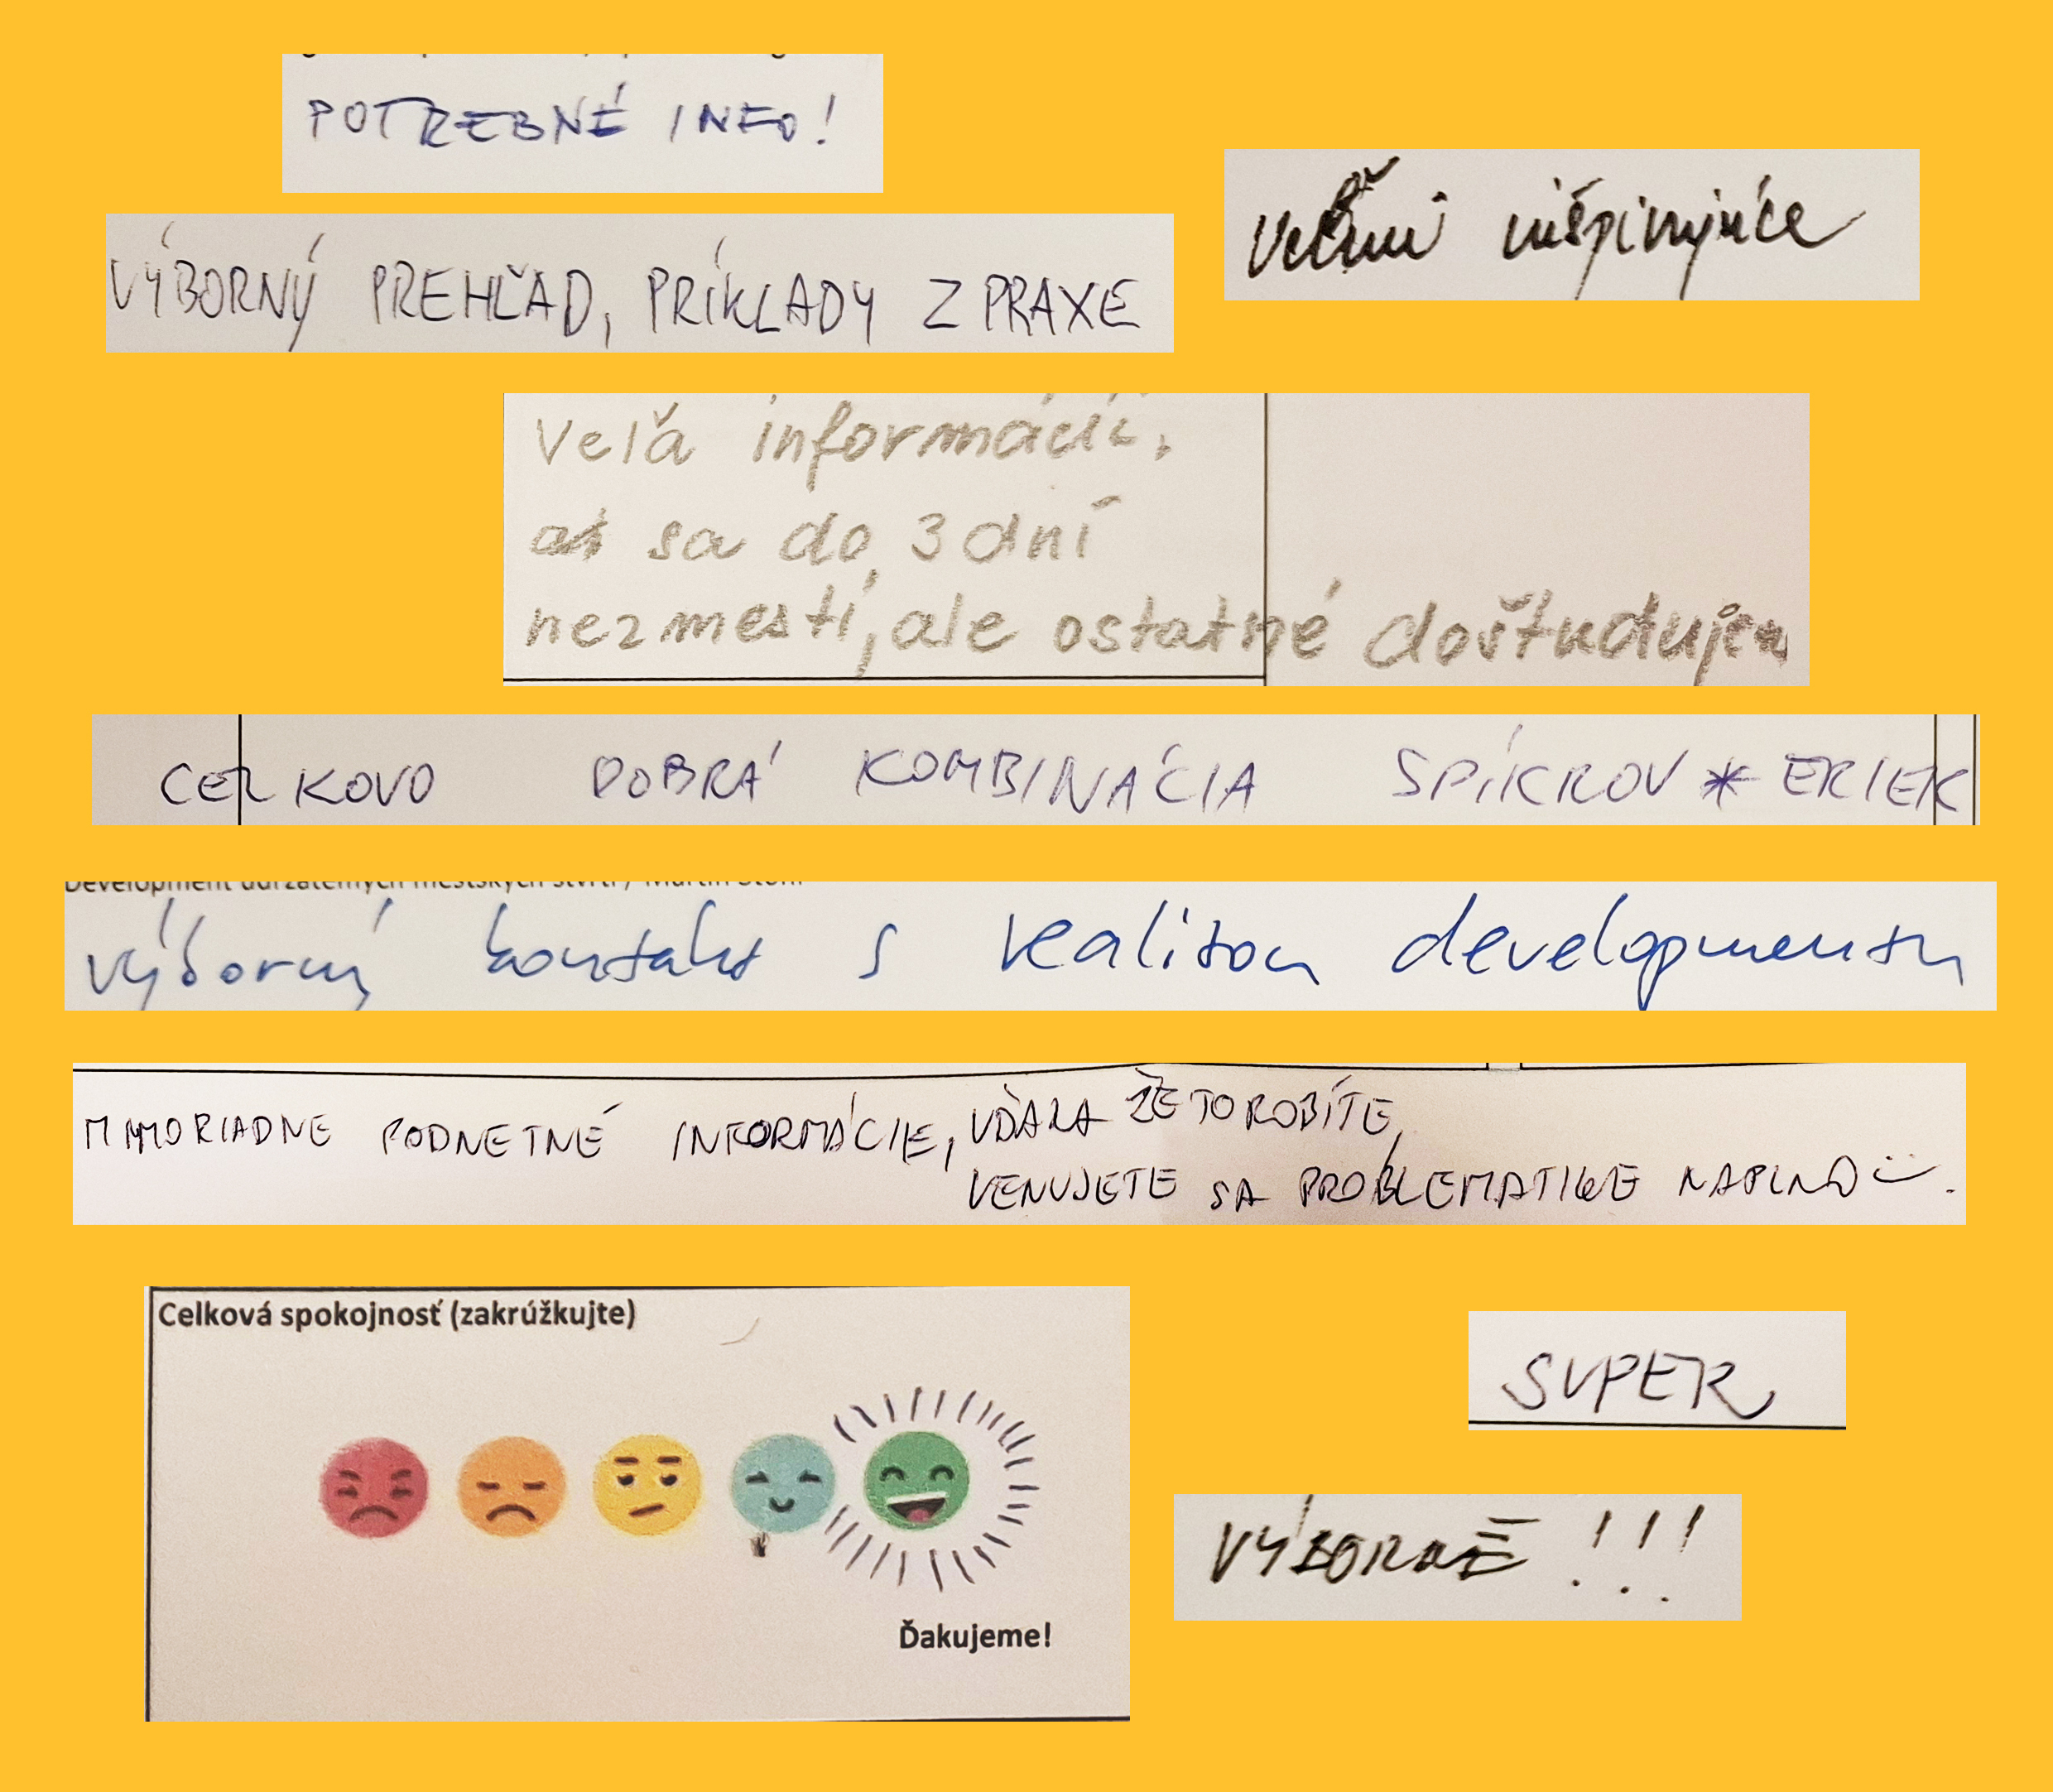 POTREBNÉ INFO!
veľmi inšpirujúce
VÝBORNÝ PREHĽAD, PRÍKLADY Z PRAXE
Veľa informácií,
sa do 3 dní
nezmestí, ale ostatné doštudujem
CELKOVO DOBRÁ KOMBINÁCIA SPÍKROV * ERIEK
výborný kontakt s realitou developmentu
MIMORIADNE PODNETNÉ INFORMÁCIE, VĎAKA ŽE TO ROBÍTE,
VENUJETE SA PROBLEMATIKE NAPLNO
Celková spokojnosť (zakrúžkujte)
SUPER
VÝBORNÉ !!!
Ďakujeme!